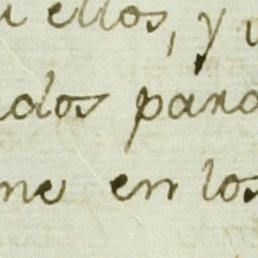 ellos, y
dos para
ne en los